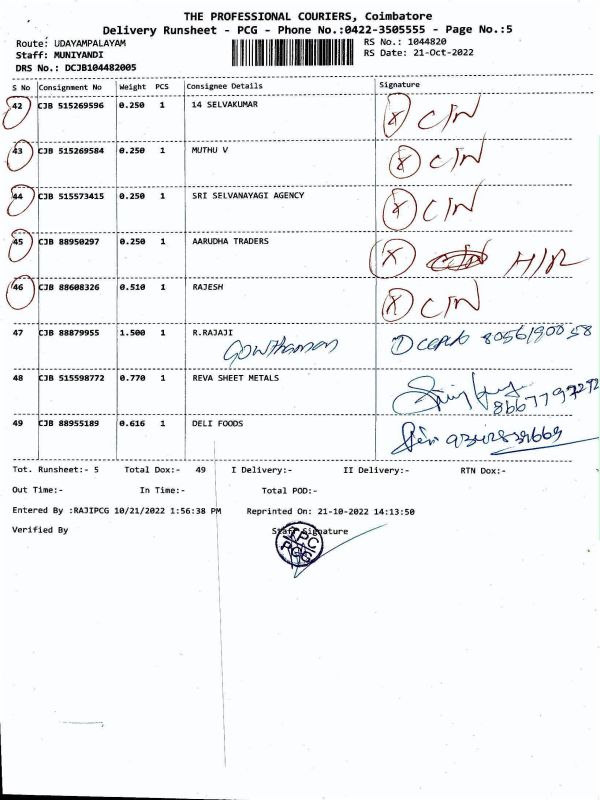 THE PROFESSIONAL COURIERS, Coimbatore
Delivery Runsheet - PCG - Phone No.:0422-3505555 - Page No.:5
Route: UDAYAMPALAYAM RS No.: 1044820
Staff: MUNIYANDI RS Date: 21-Oct-2022
DRS No.: DCJB104482005
S No Consignment No Weight PCS Consignee Details Signature
42 CJB 515269596 0.250 1 14 SELVAKUMAR X C/N
43 CJB 515269584 0.250 1 MUTHU V X C/N
44 CJB 515573415 0.250 1 SRI SELVANAYAGI AGENCY X C/N
45 CJB 88950297 0.250 1 AARUDHA TRADERS X H/R
46 CJB 88608326 0.510 1 RAJESH X C/N
47 CJB 88879955 1.500 1 R.RAJAJI
Gowthaman 8056190058
48 CJB 515598772 0.770 1 REVA SHEET METALS
8667797292
49 CJB 88955189 0.616 1 DELI FOODS
Tot. Runsheet:- 5 Total Dox:- 49 I Delivery:- II Delivery:- RTN Dox:-
Out Time:- In Time:- Total POD:-
Entered By :RAJIPCG 10/21/2022 1:56:38 PM Reprinted On: 21-10-2022 14:13:50
Verified By Staff Signature
TPC
PCG